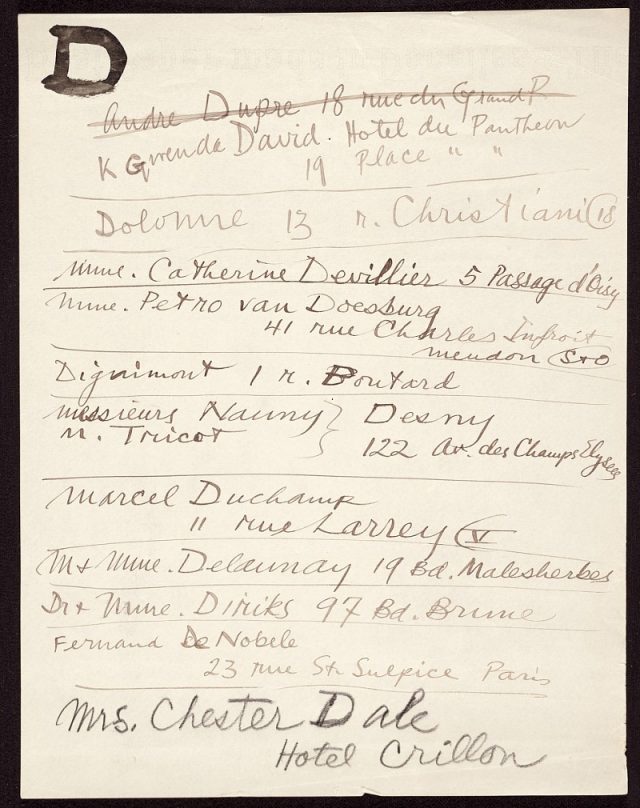 D
Andre Dupre 18 rue du Grand P.
K Gwenda David. Hotel du Pantheon
19 Place " "
Dolonne 13 r. Christiani (18
Mme. Catherine Devillier 5 Passage d'Oisy
Mme. Petro van Doesburg
41 rue Charles Infroit
Meudon S+O
Dignimont 1 r. Boutard
Messieurs Nauny } Desny
M. Tricot } 122 Av. des Champs Elysees
Marcel Duchamp
11 rue Larrey (V
M + Mme. Delaunay 19 Bd. Malesherbes
Dr + Mme. Diriks 97 Bd. Brune
Fernand De Nobele
23 rue St. Sulpice Paris
Mrs. Chester Dale
Hotel Crillon